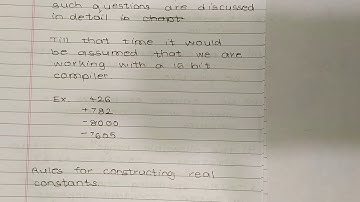 such questions are discussed
in detail is chapt
Till that time it would
be assumed that we are
working with a 16 bit
compiler
Ex. 426
+782
-8000
-7605
Rules for constructing real
constants